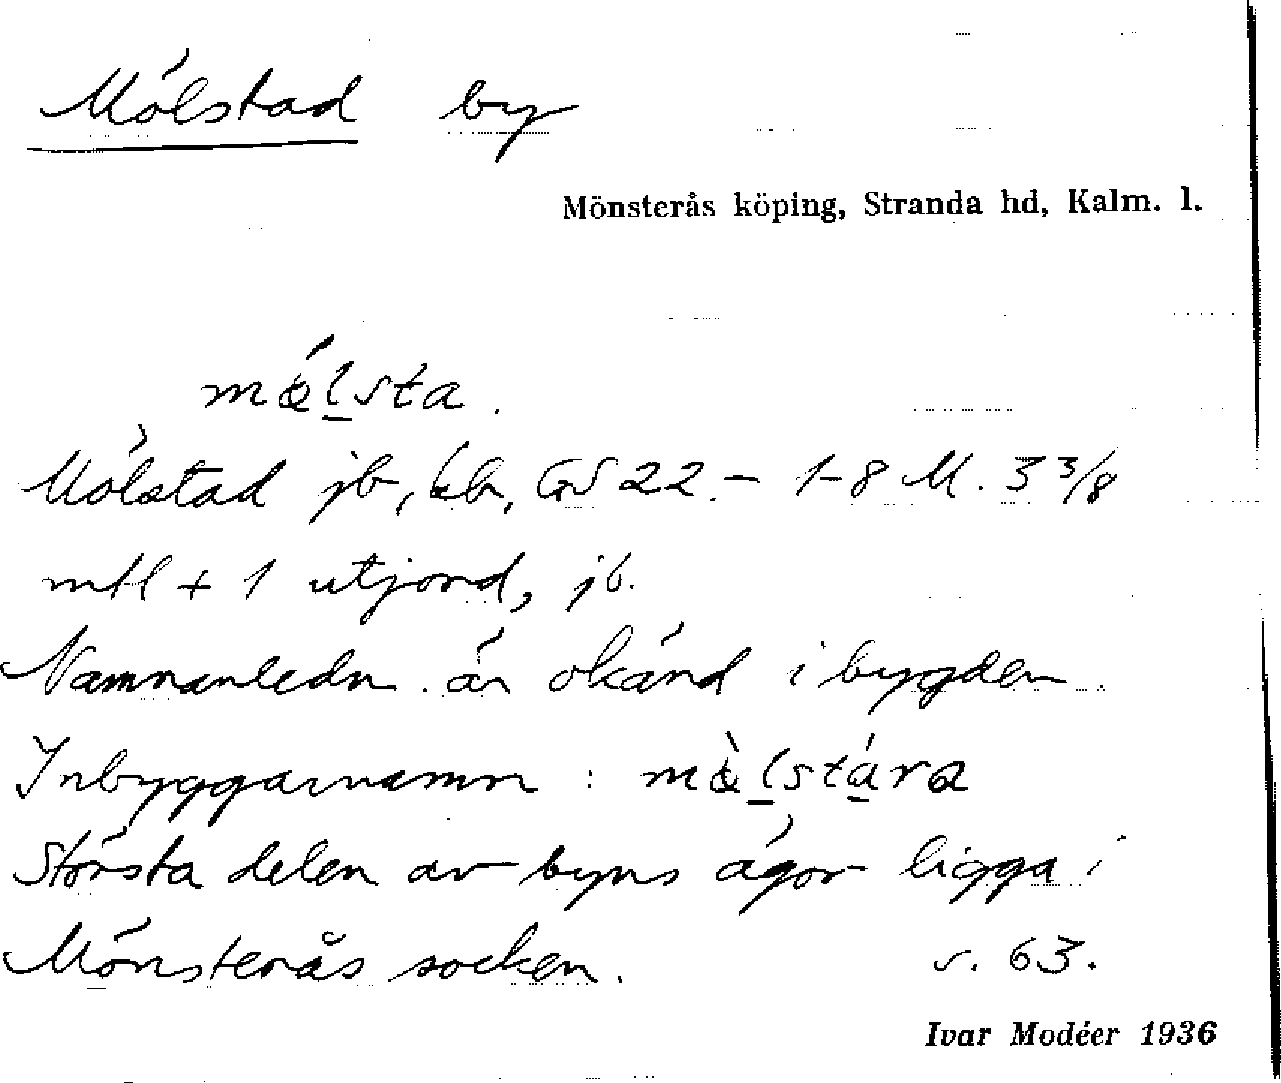 Mölstad by
Mönsterås köping, Stranda hd, Kalm. l.
mǿlsta.
Mölstad jb, kb, GS 22.- 1-8 M. 3 3/8
mtl + 1 utjord, jb.
Namnanledn. är okänd i bygden.
Inbyggarnamn: mø̀lstára
Största delen av byns ägor ligga i
Mönsterås socken. s. 63.
Ivar Modéer 1936